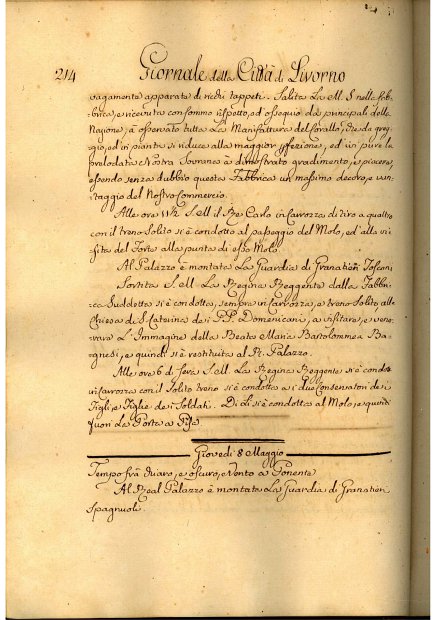 214 Giornale della Città di Livorno
vagamente apparata di ricchi tappeti. Salita La M. S. nella Fab-
brica, e ricevuta con sommo rispetto, ed ossequio da principali della
Nazione, à osservato tutta La Manifattura del Corallo, che da greg-
gio, ed in pianta si riduce alla maggior perfezione, ed in pure la
prelodata Nostra Sovrana à dimostrato gradimento, e piacere,
essendo senza dubbio questa Fabbrica un massimo decoro, e van-
taggio del Nostro Commercio.
Alle ore 11½ S. ell Rè Carlo in Carrozza di tiro a quattro
con il treno Solito si è condotto al passeggio del Molo, ed alla vi-
sita del Forte alla punta di esso Molo.
Al Palazzo è montata La Guardia di Granatieri Toscani
Sortita S. ell. La Regina Reggente dalla Fabbri-
ca Suddetta si è condotta, sempre in Carrozza, e treno Solito alla
Chiesa di S. Caterina de i PP. Domenicani, a visitare, e vene-
rare L'Immagine della Beata Maria Bartolommea Ba-
gnesi, e quindi si è restituita al R. Palazzo.
Alle ore 6 di Sera S. ell. La Regina Reggente si è condo
in Carrozza con il Solito treno si è condotta a i due Conservatori dei
Figli, e Figlie de i Soldati. Di Lì si è condotta al Molo, e quindi
fuori La Porta a Pisa
Giovedì 8 Maggio
Tempo frà chiaro, e oscuro, Vento a Ponente
Al Real Palazzo è montata La Guardia di Granatieri
Spagnuoli.